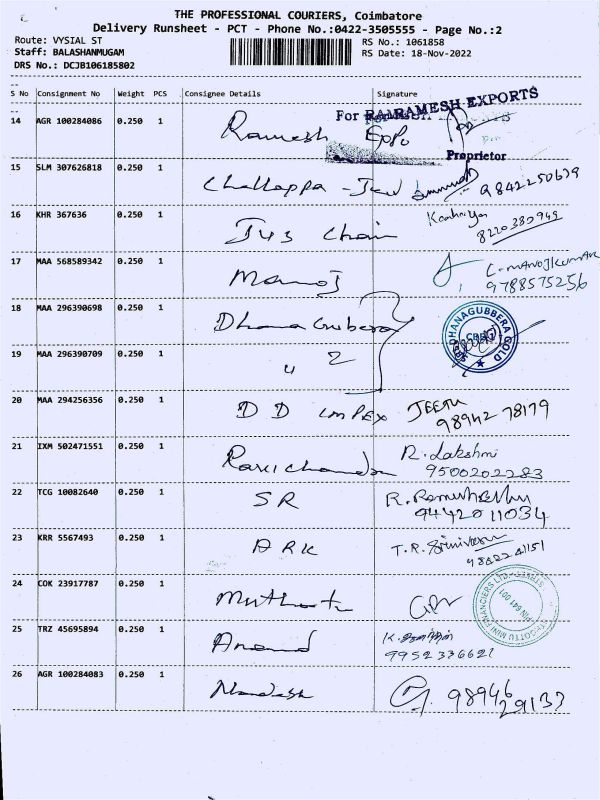 THE PROFESSIONAL COURIERS, Coimbatore
Delivery Runsheet - PCT - Phone No.:0422-3505555 - Page No.:2
Route: VYSIAL ST
RS No.: 1061858
Staff: BALASHANMUGAM
RS Date: 18-Nov-2022
DRS No.: DCJB106185802
S No Consignment No Weight PCS Consignee Details Signature
14 AGR 100284086 0.250 1 Ramesh Expo
For RAMESH EXPORTS
Proprietor
15 SLM 307626818 0.250 1 Challappa - 9842250679
16 KHR 367636 0.250 1 Jus Chain 8220380949
17 MAA 568589342 0.250 1 Manoj C. MANOJKUMAR
9788575256
18 MAA 296390698 0.250 1 Dhana Gubera
DHANAGUBBERA GOLD
19 MAA 296390709 0.250 1 " 2
20 MAA 294256356 0.250 1 D D Impex JEETU
98942 78179
21 IXM 502471551 0.250 1 Ravichandra R. Lakshmi
9500202283
22 TCG 10082640 0.250 1 SR R.
9442011034
23 KRR 5567493 0.250 1 ARK T.R. Srinivasan
24 COK 23917787 0.250 1 Muthoot
MINI FINANCIERS LTD.
PIN 641 001
25 TRZ 45695894 0.250 1 Anand K.
9952336621
26 AGR 100284083 0.250 1 98946
29133